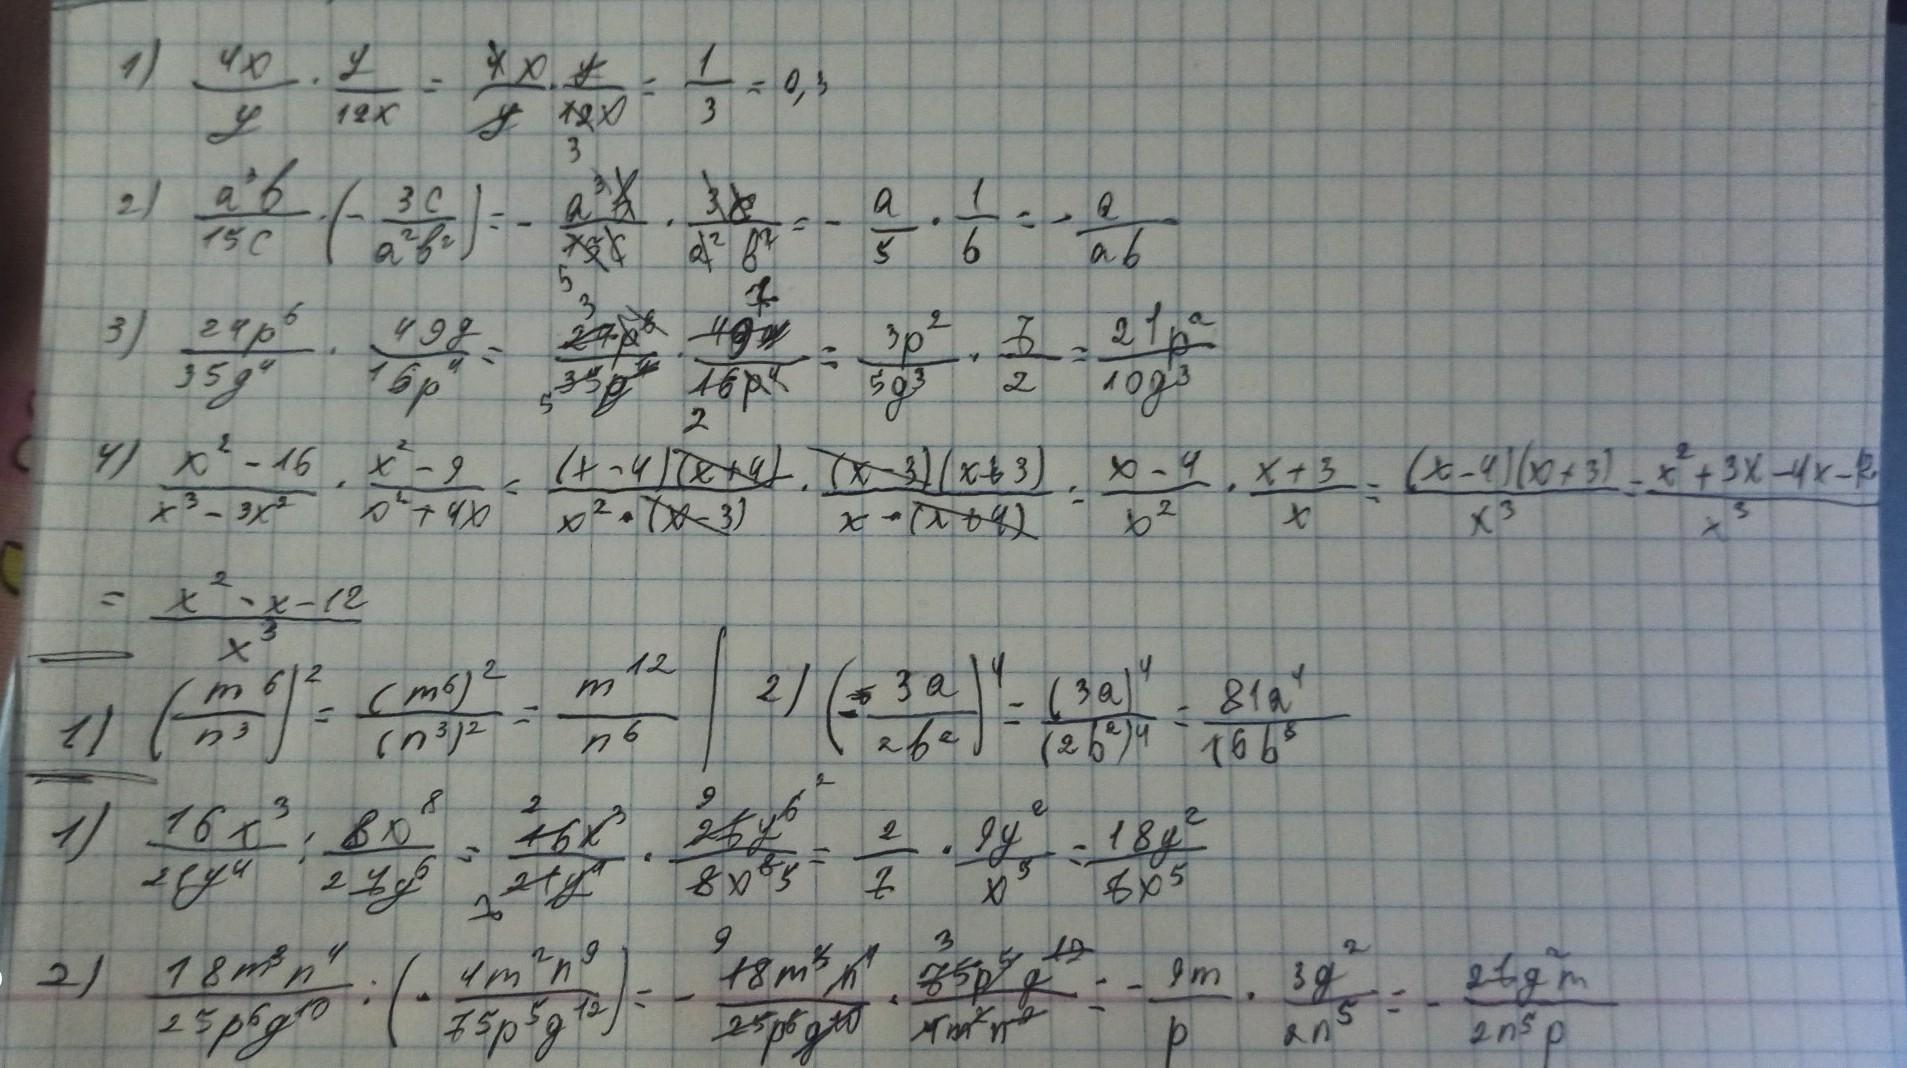 1) 4x/y · y/12x = 4x/y · y/12x 3 = 1/3 = 0,3
2) a³b/15c · (- 3c/a²b²) = - a³b/15c 5 · 3c/a²b² = - a/5 · 1/b = - a/ab
3) 24p⁶/35g⁴ · 49g/16p⁴ = 3 24p⁶/5 35g⁴ · 49g 7/16p⁴ 2 = 3p²/5g³ · 7/2 = 21p²/10g³
4) x²-16/x³-3x² · x²-9/x²+4x = (x-4)(x+4)/x²·(x-3) · (x-3)(x+3)/x·(x+4) = x-4/x² · x+3/x = (x-4)(x+3)/x³ = x²+3x-4x-12/x³
= x²-x-12/x³
1) (m⁶/n³)² = (m⁶)²/(n³)² = m¹²/n⁶ | 2) (- 3a/2b²)⁴ = (3a)⁴/(2b²)⁴ = 81a⁴/16b⁸
1) 16x³/21y⁴ : 8x⁸/27y⁶ = 2 16x³/7 21y⁴ · 9 27y⁶ 2/8x⁸ 5 = 2/7 · 9y²/x⁵ = 18y²/7x⁵
2) 18m³n⁴/25p⁶g¹⁰ : (- 4m²n⁹/75p⁵g¹²) = - 9 18m³n⁴/25p⁶g¹⁰ · 3 75p⁵g¹²/4m²n⁹ = - 9m/p · 3g²/2n⁵ = - 27g²m/2n⁵p